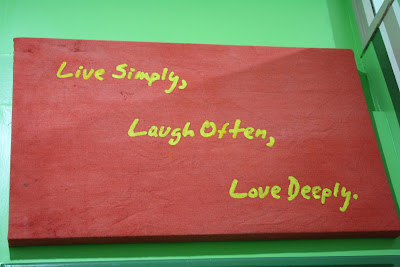 Live Simply,
Laugh Often,
Love Deeply.